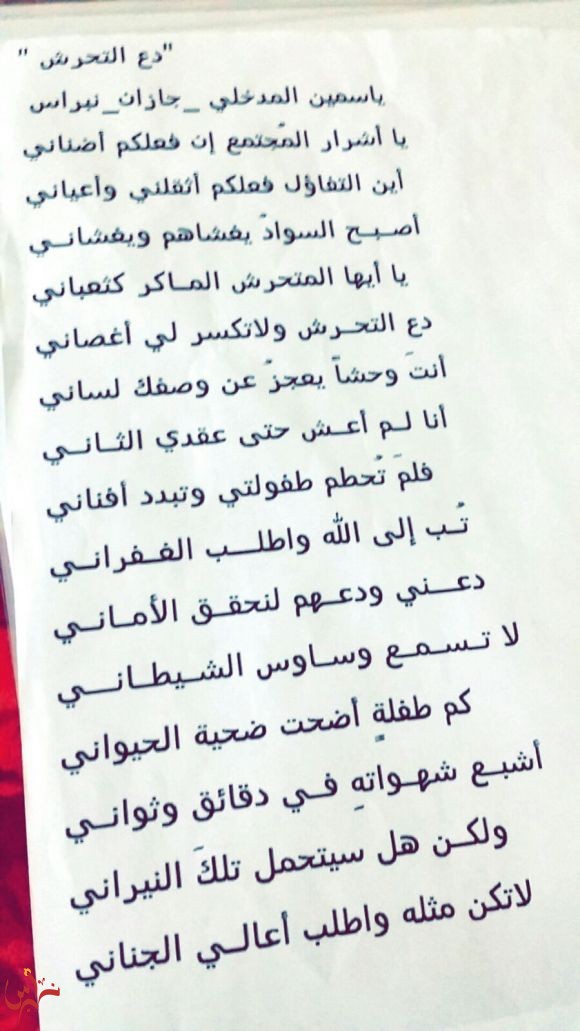 "دع التحرش "
ياسمين المدخلي _جازان_نبراس
يا أشرار المُجتمع إن فعلكم أضناني
أين التفاؤل فعلكم أثقلني وأعياني
أصـبـح السوادُ يغشاهم ويغشانـي
يا أيها المتحرش المـاكر كثعباني
دع التحـرش ولاتكسر لي أغصاني
أنتَ وحشاً يعجزُ عن وصفك لساني
أنا لـم أعـش حتى عقدي الثـانـي
فلمَ تُحطم طفولتي وتبدد أفناني
تُـب إلى الله واطلـب الغـفرانـي
دعـنـي ودعـهم لنحقـق الأمـانـي
لا تـسـمـع وسـاوس الشـيطـانـي
كم طفلةٍ أضحت ضحية الحيواني
أشبـع شهـواتهِ فـي دقائق وثوانـي
ولكـن هل سيتحمل تلكَ النيراني
لاتكن مثله واطلب أعالـي الجناني
نبراس